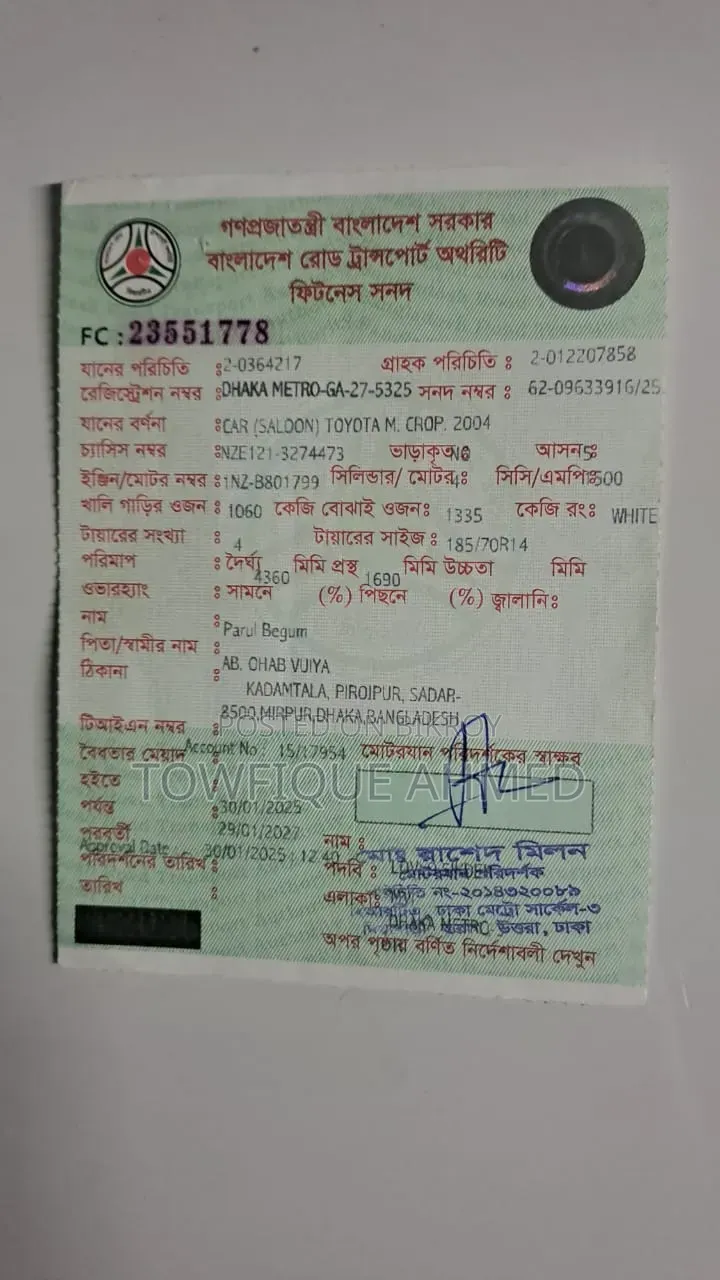 গণপ্রজাতন্ত্রী বাংলাদেশ সরকার
বাংলাদেশ রোড ট্রান্সপোর্ট অথরিটি
ফিটনেস সনদ
FC : 23551778
যানের পরিচিতি : 2-0364217 গ্রাহক পরিচিতি : 2-012207858
রেজিস্ট্রেশন নম্বর : DHAKA METRO-GA-27-5325 সনদ নম্বর : 62-09633916/25
যানের বর্ণনা : CAR (SALOON) TOYOTA M. CROP. 2004
চ্যাসিস নম্বর : NZE121-3274473 ভাড়াকৃত NO আসন 5
ইঞ্জিন/মোটর নম্বর : 1NZ-B801799 সিলিন্ডার/ মোটর: 4 সিসি/এমপি:
খালি গাড়ির ওজন : 1060 কেজি বোঝাই ওজন: 1335 কেজি রং: WHITE
টায়ারের সংখ্যা : 4 টায়ারের সাইজ : 185/70R14
পরিমাপ : দৈর্ঘ্য 4360 মিমি প্রস্থ 1690 মিমি উচ্চতা মিমি
ওভারহ্যাং : সামনে (%) পিছনে (%) জ্বালানি:
নাম : Parul Begum
পিতা/স্বামীর নাম : AB. OHAB VUIYA
ঠিকানা : KADAMTALA, PIROJPUR, SADAR-
8500,MIRPUR,DHAKA,BANGLADESH
টিআইএন নম্বর :
POSTED ON BIKROY
বৈধতার মেয়াদ Account No : 15/17954 মোটরযান পরিদর্শকের স্বাক্ষর
TOWFIQUE AHMED
হইতে :
পর্যন্ত : 30/01/2025
পরবর্তী 29/01/2027
Approval Date : 30/01/2025 : 12:40
পরিদর্শনের তারিখ :
তারিখ :
নাম : মোঃ রাশেদ মিলন
পদবি : মোটরযান পরিদর্শক
এলাকা: নং-২০১৪৩২০০৮৯
ঢাকা মেট্রো সার্কেল-৩
DHAKA METRO উত্তরা, ঢাকা
অপর পৃষ্ঠায় বর্ণিত নির্দেশাবলী দেখুন